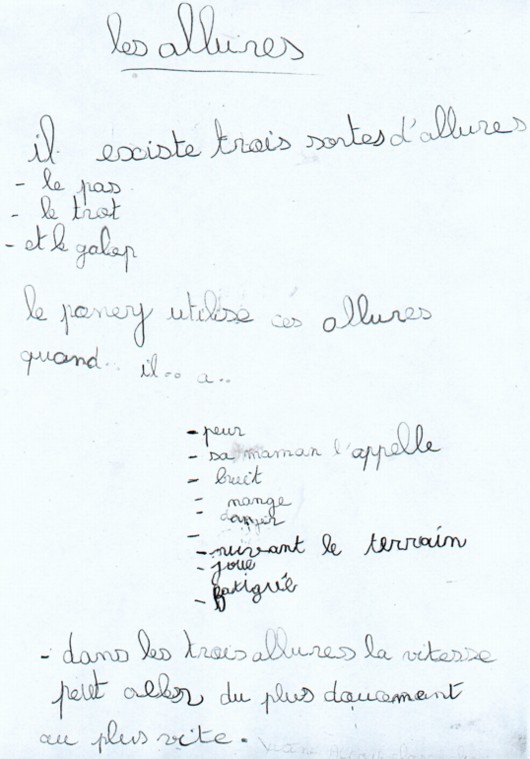 les allures
il existe trois sortes d'allures
- le pas
- le trot
- et le galop
le poney utilise ces allures
quand.. il.. a..
- peur
- sa maman l'appelle
- bruit
- mange
danger
- suivant le terrain
- joue
- fatigué
- dans les trois allures la vitesse
peut aller du plus doucement
au plus vite.